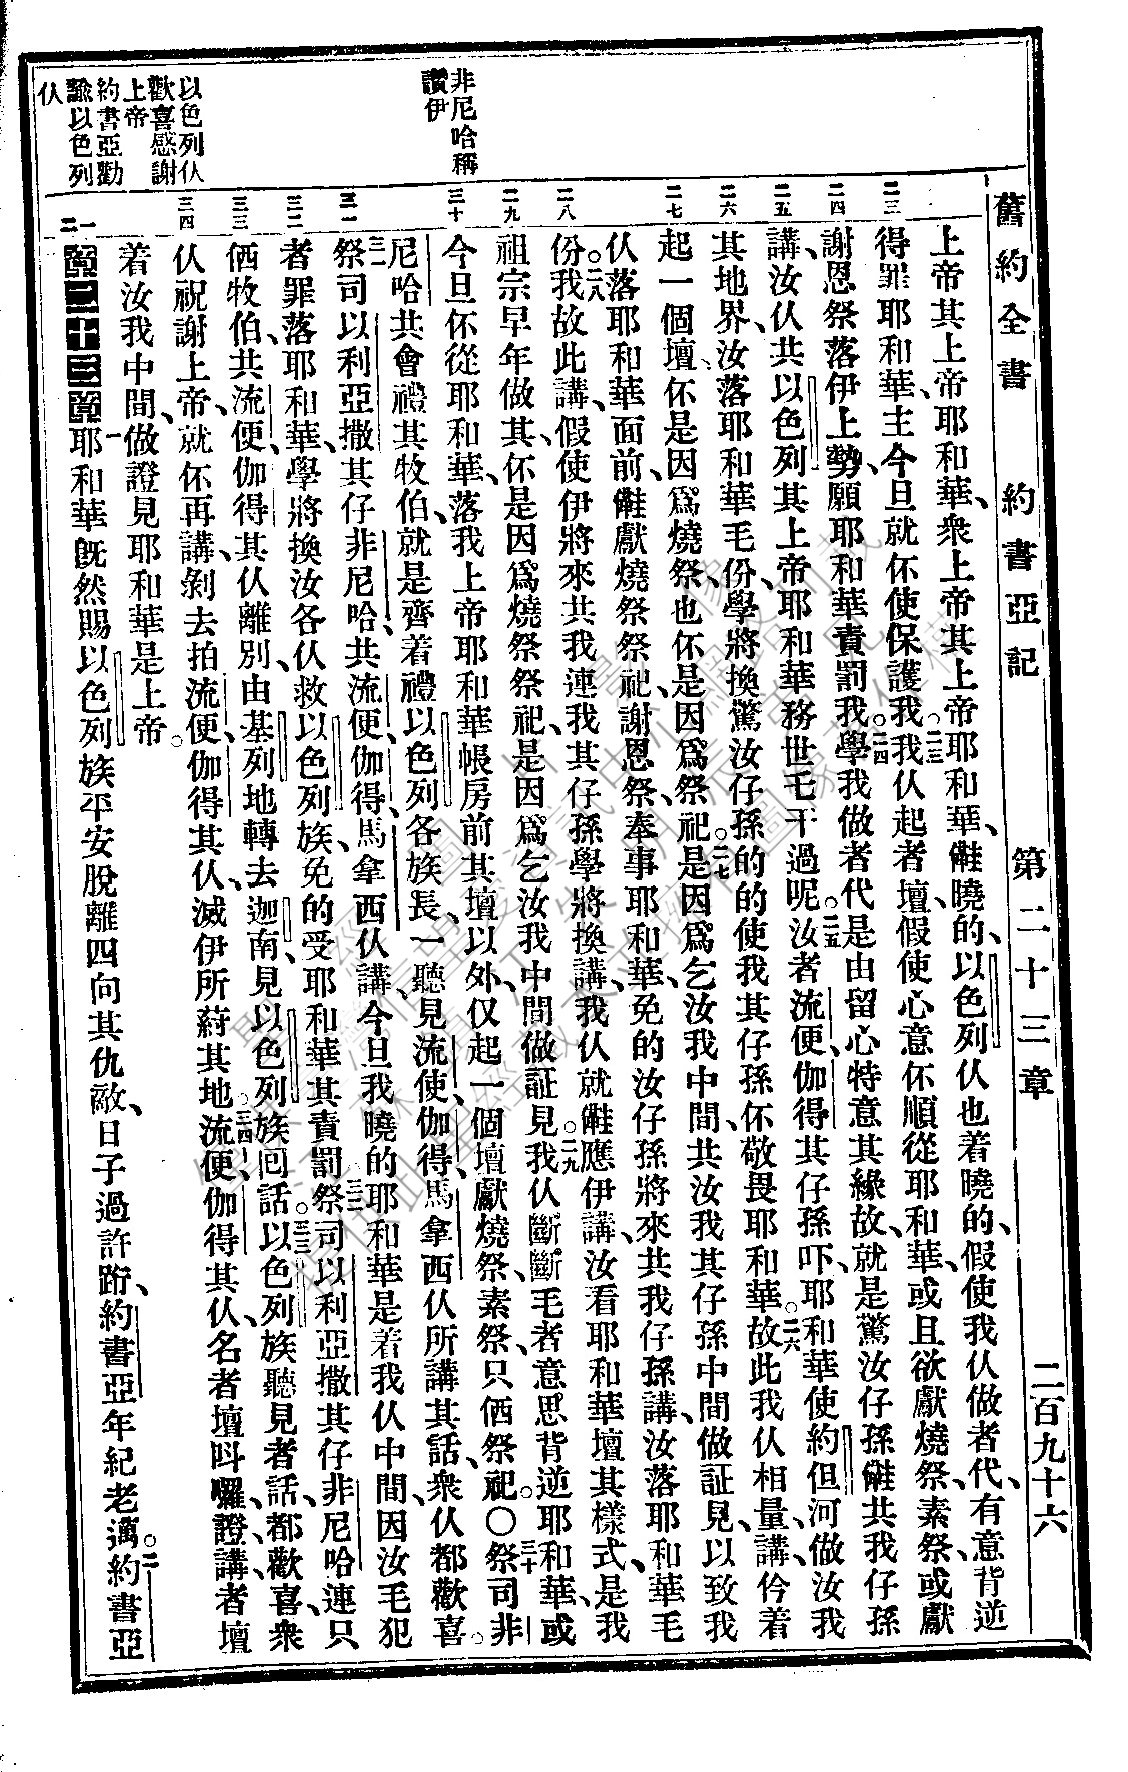 舊約全書 約書亞記 第二十三章 二百九十六
上帝其上帝耶和華、衆上帝其上帝耶和華、𠆧曉的、以色列仈也着曉的、假使我仈做者代、有意背逆
得罪耶和華、主今旦就伓使保護我。二三我仈起者壇、假使心意伓順從耶和華、或且欲獻燒祭、素祭、或獻
謝恩祭落伊上勢、願耶和華責罰我。二四學我做者代是由留心特意其緣故、就是驚汝仔孫𠆧共我仔孫
講、汝仈共以色列其上帝耶和華務世乇干過呢。二五汝者流便、伽得其仔孫吓、耶和華使約但河做汝我
其地界、汝落耶和華毛份、學將換驚汝仔孫的的使我其仔孫伓敬畏耶和華。二六故此我仈相量、講、伶着
起一個壇、伓是因爲燒祭、也伓是因爲祭祀。二七是因爲乞汝我中間、共汝我其仔孫中間做証見、以致我
仈落耶和華面前、𠆧獻燒祭、祭祀、謝恩祭、奉事耶和華、免的汝仔孫將來共我仔孫講、汝落耶和華毛
份。二八我故此講、假使伊將來共我連我其仔孫學將換講、我仈就𠆧應伊講、汝看耶和華壇其樣式、是我
祖宗早年做其、伓是因爲燒祭、祭祀、是因爲乞汝我中間做証見。二九我仈斷斷毛者意思背逆耶和華、或
今旦伓從耶和華、落我上帝耶和華帳房前其壇以外、仅起一個壇、獻燒祭、素祭、只㑚祭祀。〇三十祭司非
尼哈共會禮其牧伯、就是齊着禮以色列各族長、一聽見流便、伽得、馬拿西仈所講其話、衆仈都歡喜。
三一祭司以利亞撒其仔非尼哈共流便、伽得、馬拿西仈講、今旦我曉的耶和華是着我仈中間、因汝毛犯
者罪落耶和華、學將換汝各仈救以色列族、免的受耶和華其責罰。三二祭司以利亞撒其仔非尼哈連只
㑚牧伯、共流便、伽得其仈離別、由基列地轉去迦南、見以色列族回話。三三以色列族聽見者話、都歡喜、衆
仈祝謝上帝、就伓再講、剝去拍流便、伽得其仈、滅伊所蒔其地。三四流便、伽得其仈、名者壇呌囉、證講者壇
着汝我中間、做證見耶和華是上帝。
第二十三章 一耶和華旣然賜以色列族平安脫離四向其仇敵、日子過許䟓、約書亞年紀老邁。二約書亞
非尼哈稱
讚伊
以色列仈
歡喜感謝
上帝
約書亞勸
諭以色列
仈
二三
二四
二五
二六
二七
二八
二九
三十
三一
三二
三三
三四
一
二